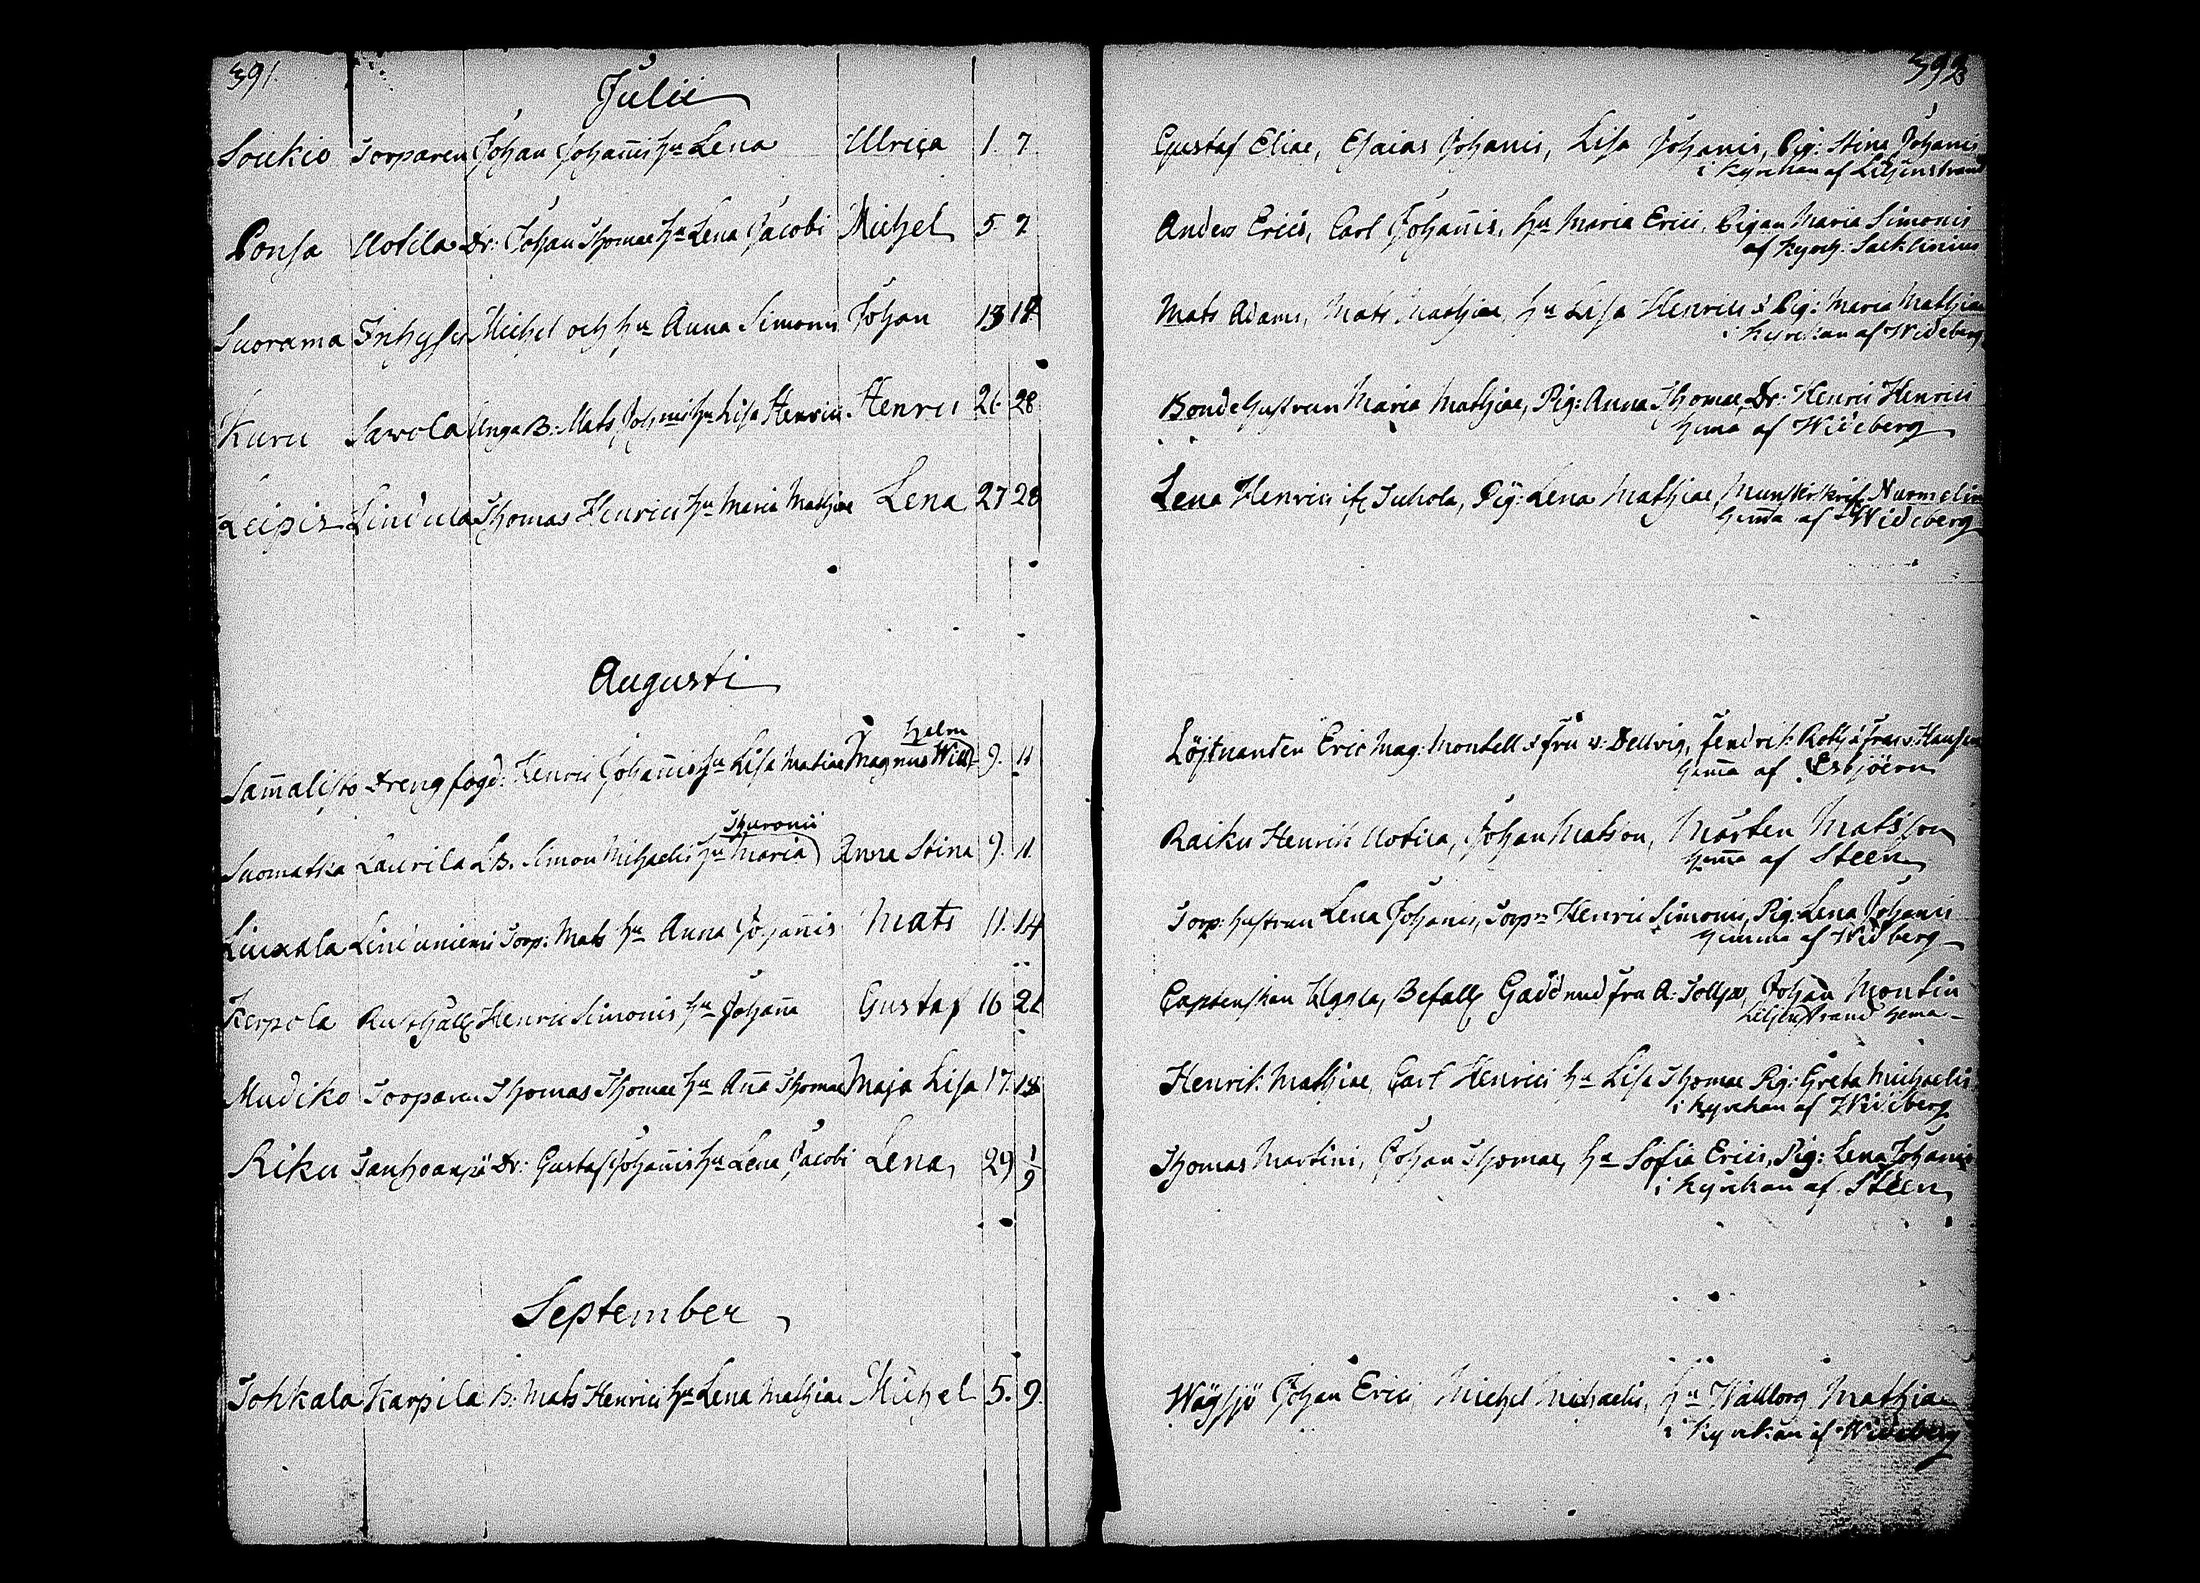 391.
Julii
Soukio Torparen Johan Johannis hu Lena Ulrica 1. 7
Ponsa Uotila Dr: Johan Thomae hu Lena Jacobi Michel 5. 7
Suorama Inhyses Michel och hu Anna Simonis Johan 13 14
Kuru Savola Unga B: Mats Joh:nis hu Lisa Henrici Henric 26 28
Leipis Lindula Thomas Henrici hu Maria Mathiae Lena 27 28
Augusti
helm
Sam̄alisto Drengfogd: Henric Johan̄is hu Lisa Matiae Magnus Will 9. 11
Suomatka Laurila LB. Simon Michaelis hu Maria Anna Stina 9. 11.
Liuxala Torp: Mats hu Anna Johan̄is Mats 11. 14
Kerpola Rusthåll Henric Simonis hu Johan̄a Gustaf 16 21
Mudiko Torparen Thomas Thomae hu An̄a Thomae Maja Lisa 17. 18
Riku Tanhoanpä Dr: Gustaf Johan̄is hu Lena Jacobi Lena, 29 1/9
September
Tohkala Karpila B: Mats Henrici hu Lena Mathiae Michel 5. 9.
Gustaf Eliae, Esaias Johanis, Lisa Johanis, Pig: Stina Johanis
i Kyrckan af Liljenstrand
Anders Erici, Carl Johan̄is, hu Maria Erici, Pigan Maria Simonis
af Kyrch: Sacklinius
Mats Adami, Mats Mathiae, hu Lisa Henrici & Pig: Maria Mathiae
i Kyrckan af Wideberg
Bonde Hustrun Maria Mathiae, Pig: Anna Thomae, Dr: Henric Henrici
hema af Wideberg
Lena Henrici ifr Juhola, Pig: Lena Mathiae, Munsterskrif Nurmelin
hem̄a af Wideberg
Löjtnanten Eric Mag: Montell & fru v: Dellvig, Fendrik Roth & Fru v: Hausen
hem̄a af Esbjöern
Raiku Henrik Uotila, Johan Matson, Mårten Matsson
hem̄a af Steen
Torp: hustrun Lena Johanis, Torp:n Henric Simonis, Pig: Lena Johanis
hemma af Widberg
Captenskan Uggla, Befallg Gaddnud fru A: Tollpo, Johan Montin
Liljenstrand hema
Henrik: Mathiae, Carl Henrici hu Lisa Thomae Pig: Greta Michaelis
i Kyrckan af Wideberg
Thomas Martini, Johan Thomae, hu Sofia Erici, Pig: Lena Johanis
i Kyrckan af Steen
Wäysjö Johan Erici Michel Michaelis, hu Wallborg Mathiae
i Kyrckan af Wideberg